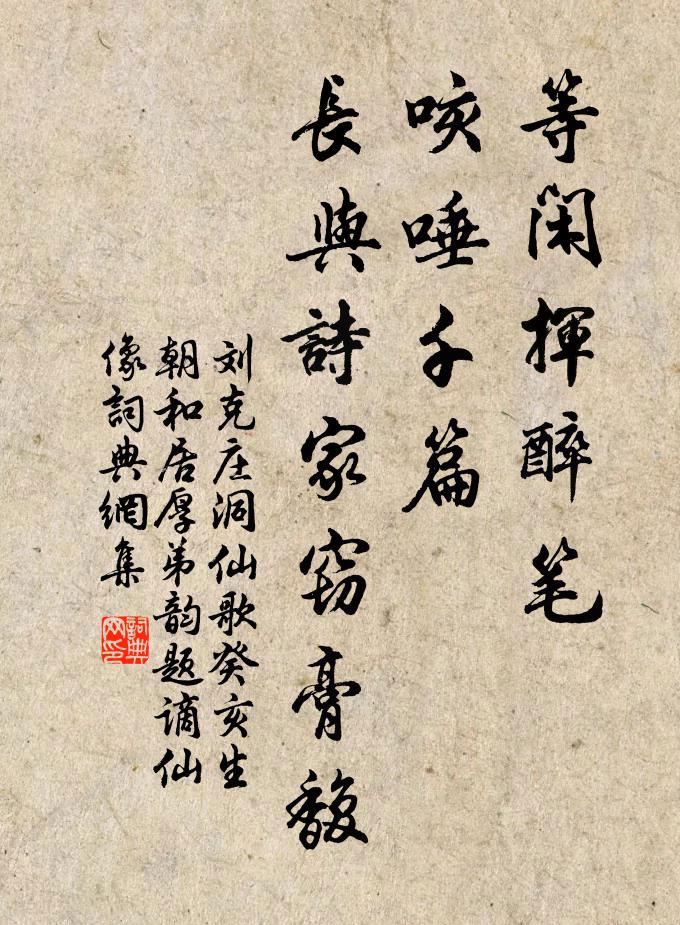 等闲揮醉笔
咳唾千篇
長與詩家窃膏馥
刘克庄洞仙歌癸亥生
朝和居厚弟韵题谪仙
像詞典網集
詞典网印